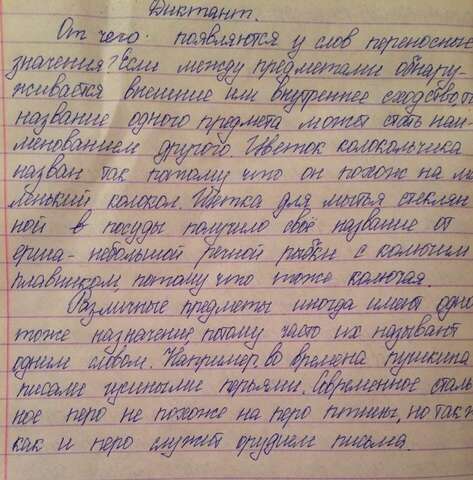 Диктант.
От чего появляются у слов переносные
значения? Если между предметами обнару-
живается внешнее или внутреннее сходство, то
название одного предмета может стать наи-
менованием другого. Цветок колокольчика
назван так потому что он похож на ма
ленький колокол. Щётка для мытья стеклян
ной в посуды получило своё название от
ерша - небольшой речной рыбки с колючим
плавником, потому что тоже колючая.
Различные предметы иногда имеют одно
тоже назначение потому часто их называют
одним словом. Например, во времена пушкина
писали гусиными перьями. Современное сталь
ное перо не похоже на перо птицы, но так ж
как и перо служит орудием письма.